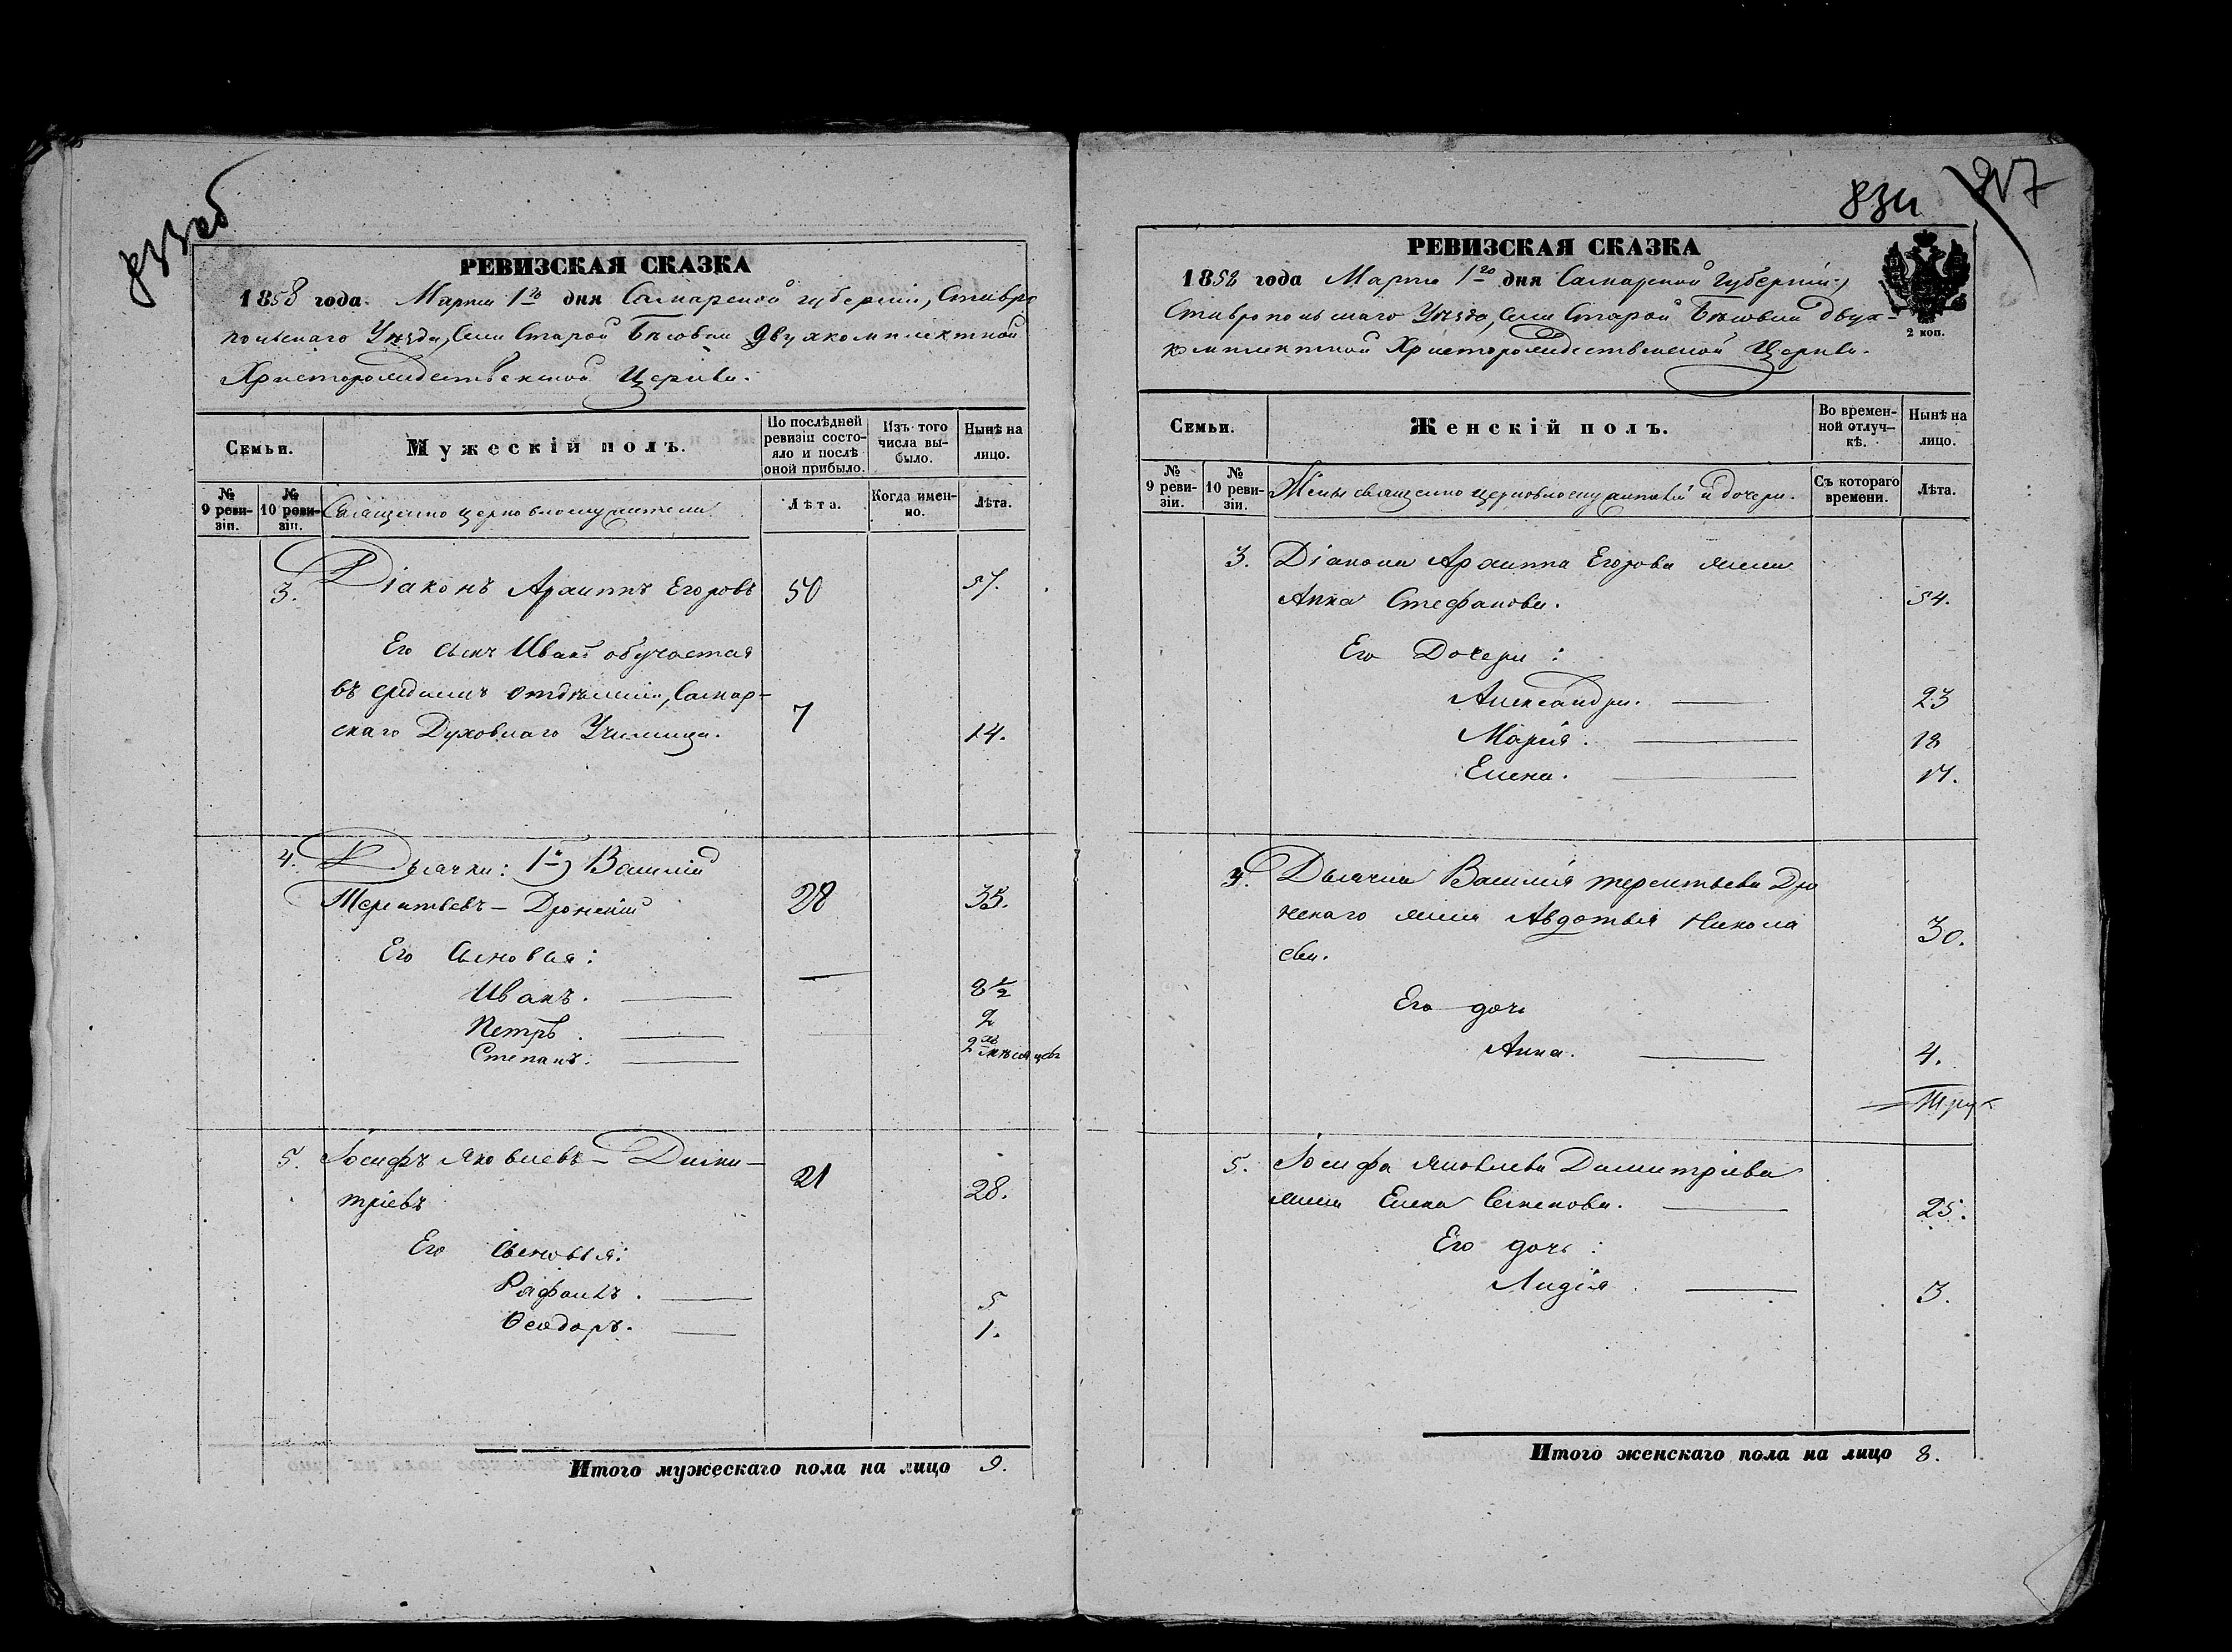 833об
РЕВИЗСКАЯ СКАЗКА
1858 года Марта 1го дня Самарской губерніи, Ставро
польскаго Уѣзда, Села Старой Бѣсовки Двухкомплектной
Христорождественской Церкви.
Семьи.
Мужескій полъ.
По послѣдней ревизіи состояло и послѣ оной прибыло.
Изъ того числа выбыло.
Нынѣ на лицо.
№ 9 ревизіи.
№ 10 ревизіи.
Священно церковнослужители
Лѣта.
Когда именно.
Лѣта.
3. Діаконъ Архиппъ Егоровъ 50 57.
Его сынъ Иванъ обучается
въ среднемъ отдѣленіи, Самар-
скаго Духовнаго Училища. 7 14.
4. Дьячки: 1й) Василій
Терентьевъ - Дронскій 28 35.
Его Сыновья:
Иванъ. — 8 1/2
Петръ. 2
Степанъ. 2хъ мѣсяцевъ
5. Іосифъ Яковлевъ - Дими-
тріевъ 21 28.
Его Сыновья:
Рафаилъ. 5
Ѳеодоръ. 1.
Итого мужескаго пола на лицо 9.
834
РЕВИЗСКАЯ СКАЗКА
1858 года Марта 1го дня Самарской Губерніи,
Ставропольскаго Уѣзда, Села Старой Бѣсовки Двух-
комплектной Христорождественской Церкви.
2 коп.
Семьи.
Женскій полъ.
Во временной отлучкѣ.
Нынѣ на лицо.
№ 9 ревизіи.
№ 10 ревизіи.
Жены священно церковнослужителей и дочери.
Съ котораго времени.
Лѣта.
3. Діакона Архиппа Егорова жена
Анна Стефанова. 54.
Его Дочери:
Александра. 23
Марія. 18
Елена. 17.
4. Дьячка Василія Терентьева Дро
нскаго жена Авдотья Никола
ева. 30.
Его дочь
Анна. 4.
5. Іосифа Яковлева Димитріева
жена Елена Семенова. 25.
Его дочь:
Лидія 3.
Итого женскаго пола на лицо 8.